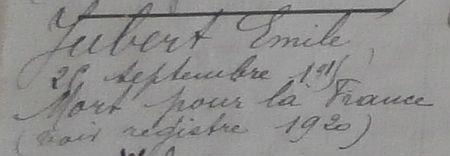 Jubert Emile
septembre 1915
Mort pour la France
(voir registre 1920)